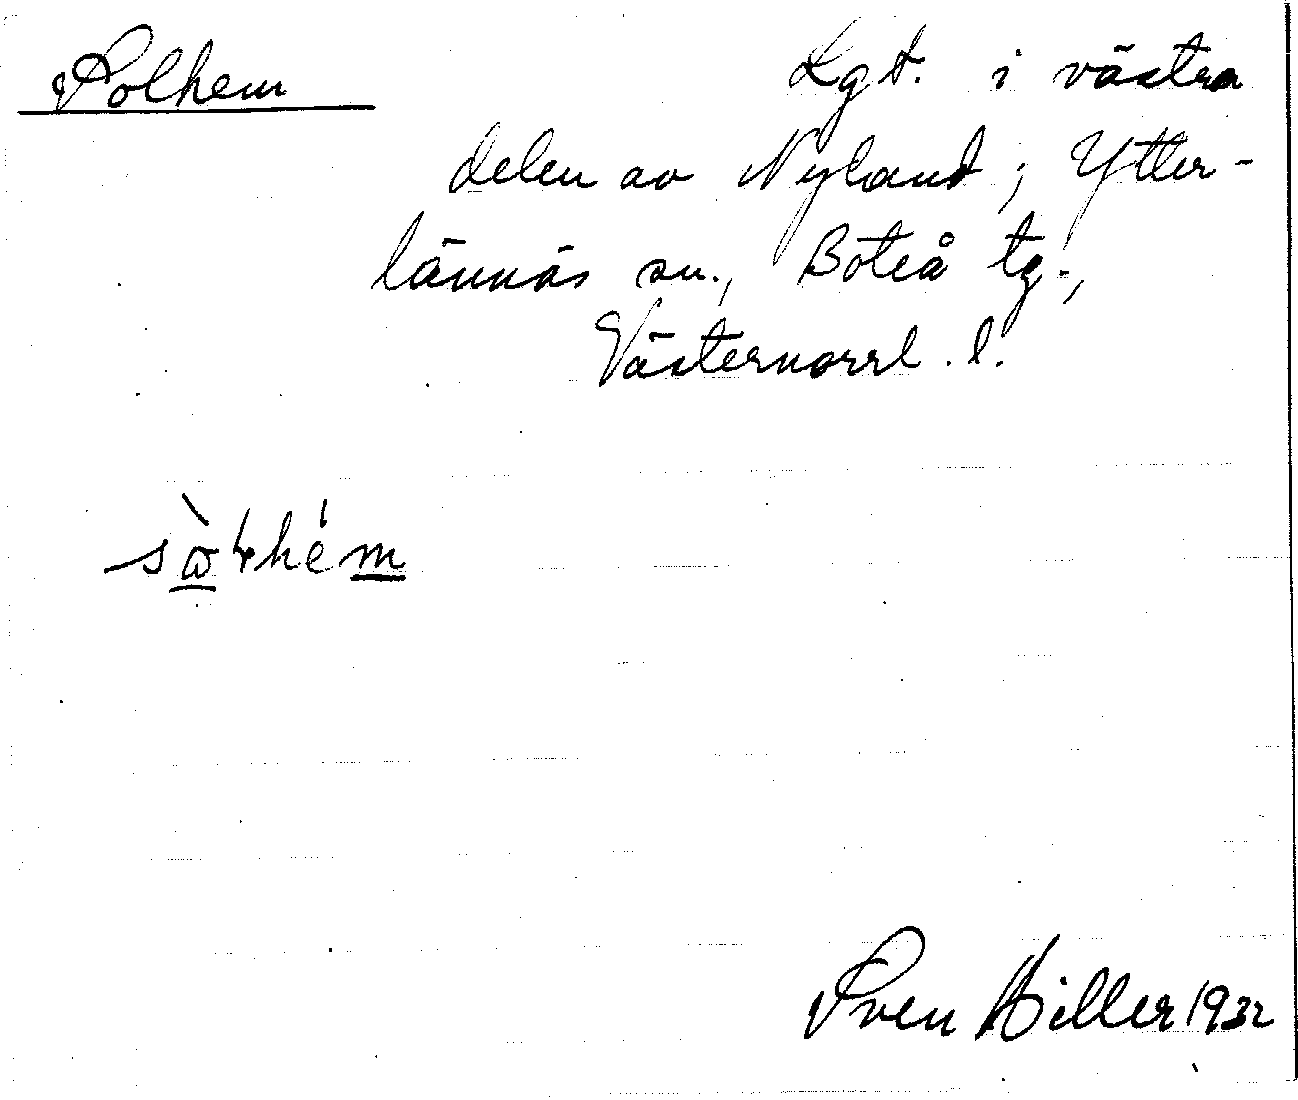 Solhem
Lgt. i västra
delen av Nyland; Ytter-
lännäs sn., Boteå tg.,
Västernorrl. l.
Sven Hiller 1932